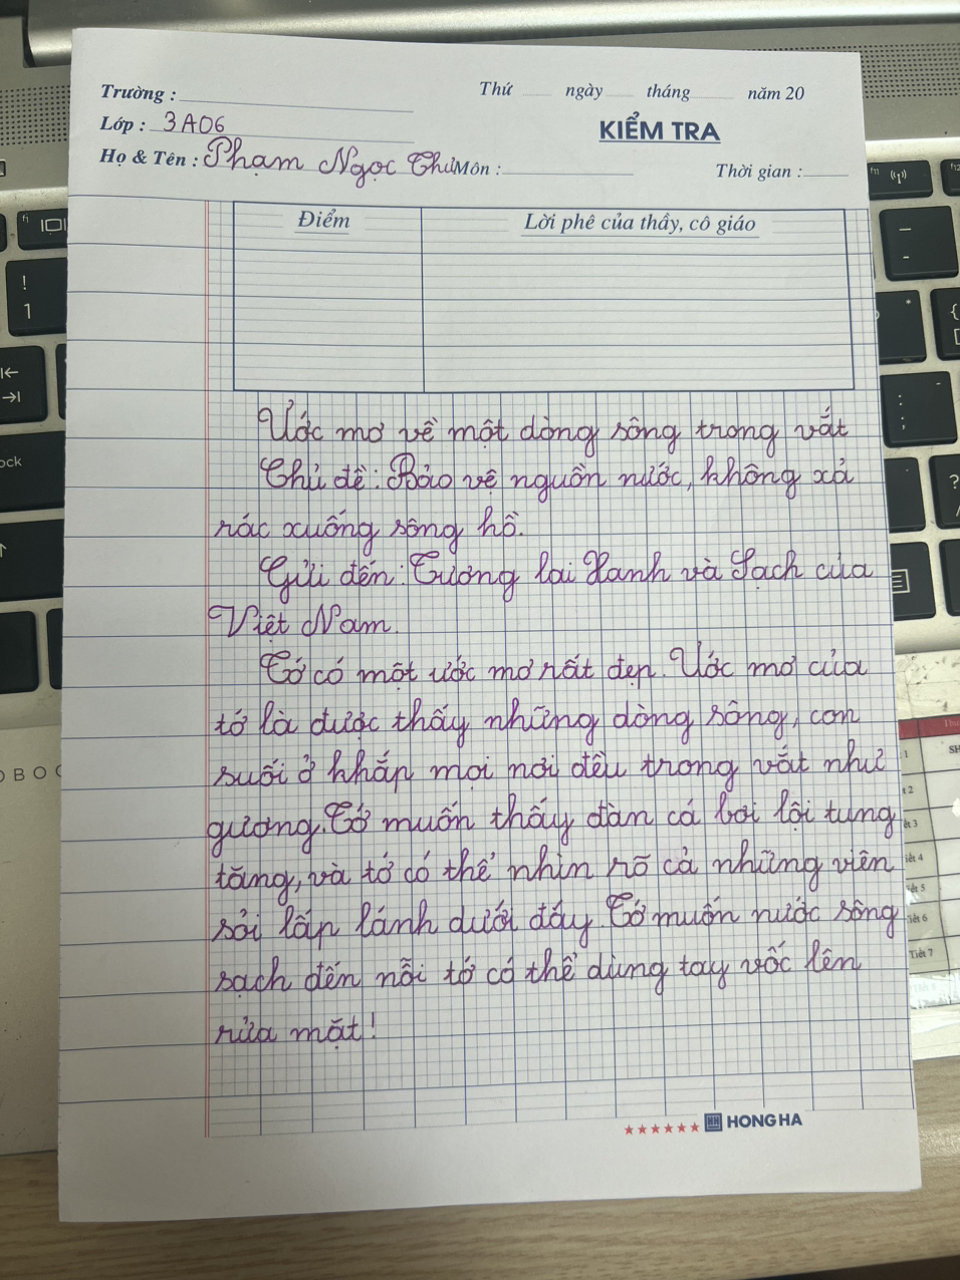 Trường :
Thứ ngày tháng năm 20
Lớp : 3A06
KIỂM TRA
Họ & Tên : Phạm Ngọc Môn :
Thời gian :
Điểm
Lời phê của thầy, cô giáo
Ước mơ về một dòng sông trong vắt
Chủ đề: Bảo vệ nguồn nước, không xả
rác xuống sông hồ.
Gửi đến: Tương lai Xanh và Sạch của
Việt Nam.
Tớ có một ước mơ rất đẹp. Ước mơ của
tớ là được thấy những dòng sông, con
suối ở khắp mọi nơi đều trong vắt như
gương. Tớ muốn thấy đàn cá bơi lội tung
tăng, và tớ có thể nhìn rõ cả những viên
sỏi lấp lánh dưới đáy. Tớ muốn nước sông
sạch đến nỗi tớ có thể dùng tay vốc lên
rửa mặt!
HONG HA
!
1
fn
f12
Tiết 7